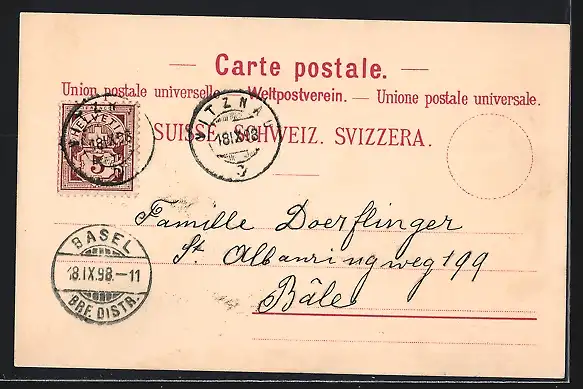 — Carte postale. —
Union postale universelle. — Weltpostverein. — Unione postale universale.
SUISSE. SCHWEIZ. SVIZZERA.
HELVETIA
5
VITZNAU
18.IX.98
Familie Doerflinger
St. Albanringweg 199
Bâle
BASEL
18.IX.98.–11
BRF. DISTR.